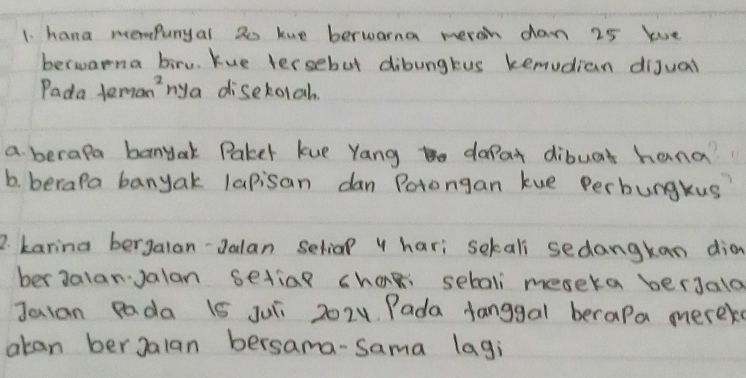 1. hana mempunyai 20 kue berwarna merah dan 25 kue
berwarna biru. kue tersebut dibungkus kemudian dijual
Pada teman²nya disekolah.
a. berapa banyak Paket kue Yang dapat dibuat hana?
b. berapa banyak lapisan dan Potongan kue Perbungkus?
2. karina berjalan-Jalan setiap 4 hari sekali sedangkan dian
berJalan-Jalan setiap hari sekali mereka berjala
Jalan Pada 15 Juli 2024. Pada tanggal berapa mereka
akan berJalan bersama-sama lagi